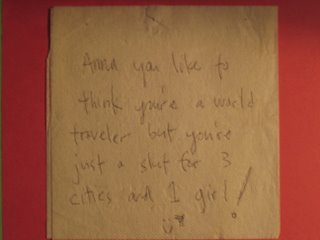 Anna you like to
think you're a world
traveler but you're
just a slut for 3
cities and 1 girl!